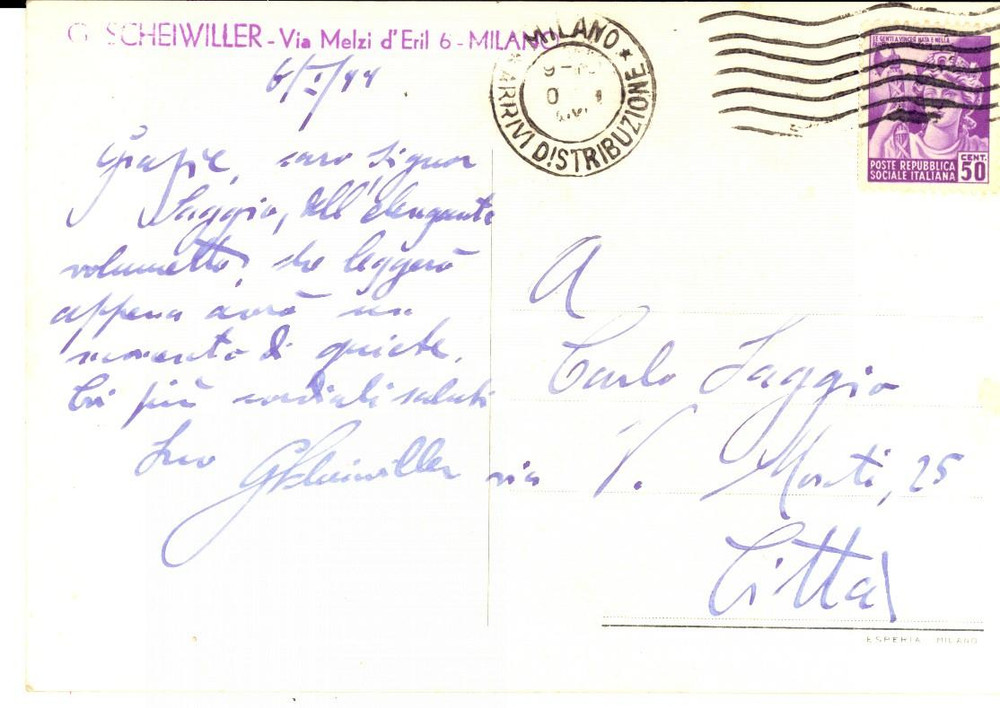 G. SCHEIWILLER - Via Melzi d'Eril 6 - MILANO
6/I/44
Grazie, caro Signor
Saggio, dell'elegante
volumetto, che leggerò
appena avrò un
momento di quiete.
Coi più cordiali saluti
Suo GScheiwiller
MILANO
ARRIVI DISTRIBUZIONE
LE GENTI A VINCER NATA E NELLA
POSTE REPUBBLICA
SOCIALE ITALIANA
CENT.
50
A
Carlo Saggio
via V. Monti, 25
Città
ESPERIA MILANO